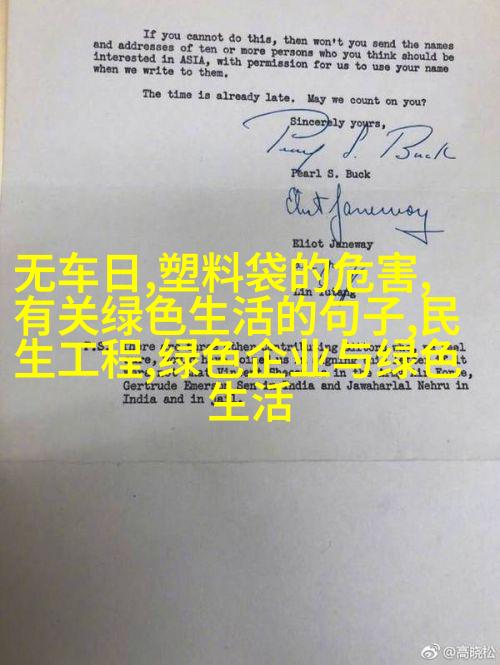 If you cannot do this, then won't you send the names
and addresses of ten or more persons who you think should be
interested in ASIA, with permission for us to use your name
when we write to them.
The time is already late. May we count on you?
Sincerely yours,
Pearl S. Buck
Pearl S. Buck
Eliot Janeway
Eliot Janeway
Lin Yutang
无车日,塑料袋的危害,
有关绿色生活的句子,民
生工程,绿色企业与绿色
生活
P.S. There are three other contributing editors
in the
Force,
Gertrude Emerson Sen in India and Jawaharlal Nehru in
India and in jail.
@高晓松